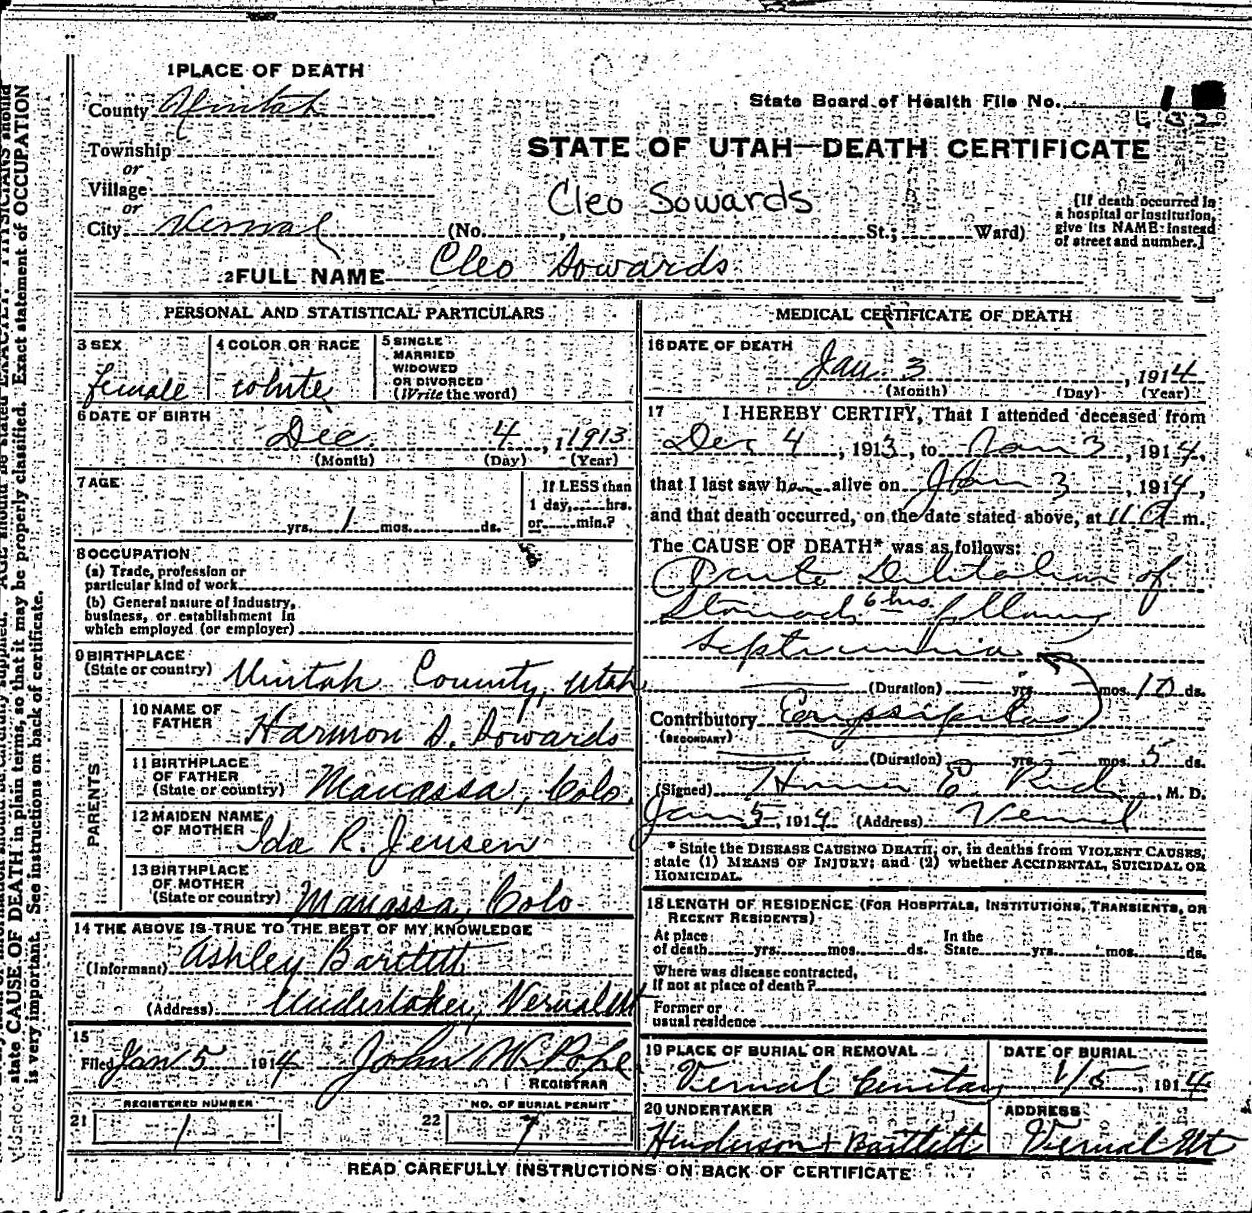 1 PLACE OF DEATH
County Uintah
State Board of Health File No.
Township
or
Village
or
City Vernal
STATE OF UTAH—DEATH CERTIFICATE
Cleo Sowards
(No. , St.; Ward)
[If death occurred in a hospital or institution, give its NAME instead of street and number.]
2 FULL NAME Cleo Sowards
PERSONAL AND STATISTICAL PARTICULARS
3 SEX
female
4 COLOR OR RACE
white
5 SINGLE
MARRIED
WIDOWED
OR DIVORCED
(Write the word)
6 DATE OF BIRTH
Dec. 4, 1 1913
(Month) (Day) (Year)
7 AGE
yrs. 1 mos. ds.
If LESS than
1 day, hrs.
or min.?
8 OCCUPATION
(a) Trade, profession or
particular kind of work
(b) General nature of industry,
business, or establishment in
which employed (or employer)
9 BIRTHPLACE
(State or country) Uintah County, Utah
PARENTS
10 NAME OF
FATHER Harmon D. Sowards
11 BIRTHPLACE
OF FATHER
(State or country) Manassa, Colo.
12 MAIDEN NAME
OF MOTHER Ida R. Jensen
13 BIRTHPLACE
OF MOTHER
(State or country) Manassa, Colo
14 THE ABOVE IS TRUE TO THE BEST OF MY KNOWLEDGE
(Informant) Ashley Bartlett
(Address) Undertaker, Vernal Ut
15
Filed Jan 5 1914 John N. Pope
REGISTRAR
REGISTERED NUMBER
21 1
NO. OF BURIAL PERMIT
22 7
MEDICAL CERTIFICATE OF DEATH
16 DATE OF DEATH
Jan. 3, 1914
(Month) (Day) (Year)
17 I HEREBY CERTIFY, That I attended deceased from
Dec 4, 1913, to Jan 3, 1914,
that I last saw h alive on Jan 3, 1914,
and that death occurred, on the date stated above, at 11 a m.
The CAUSE OF DEATH* was as follows:
Acute Dilitation of
Stomach 6 hrs. following
Septicemia
(Duration) yrs. mos. 10 ds.
Contributory Erysipelas
(SECONDARY)
(Duration) yrs. mos. 5 ds.
(Signed) Homer E. Rich, M. D.
Jan 5, 1914 (Address) Vernal
* State the DISEASE CAUSING DEATH, or, in deaths from VIOLENT CAUSES,
state (1) MEANS OF INJURY; and (2) whether ACCIDENTAL, SUICIDAL OR
HOMICIDAL.
18 LENGTH OF RESIDENCE (FOR HOSPITALS, INSTITUTIONS, TRANSIENTS, OR
RECENT RESIDENTS)
At place
of death yrs. mos. ds.
In the
State yrs. mos. ds.
Where was disease contracted,
if not at place of death?
Former or
usual residence
19 PLACE OF BURIAL OR REMOVAL
Vernal Cemetary
DATE OF BURIAL
1/5, 1914
20 UNDERTAKER
Henderson + Bartlett
ADDRESS
Vernal Ut
READ CAREFULLY INSTRUCTIONS ON BACK OF CERTIFICATE
state CAUSE OF DEATH in plain terms, so that it may be properly classified. Exact statement of OCCUPATION
is very important. See instructions on back of certificate.